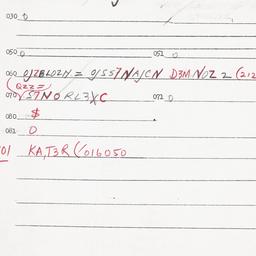 030 0
050 0 051 0
060 0JZBLOZH = 0/S57NA/CN D3MNOZ 2 (212
(QZZ=)
070 √57NORL3XC 072 0
080 $
081 0
01 KA,T3R(/016050